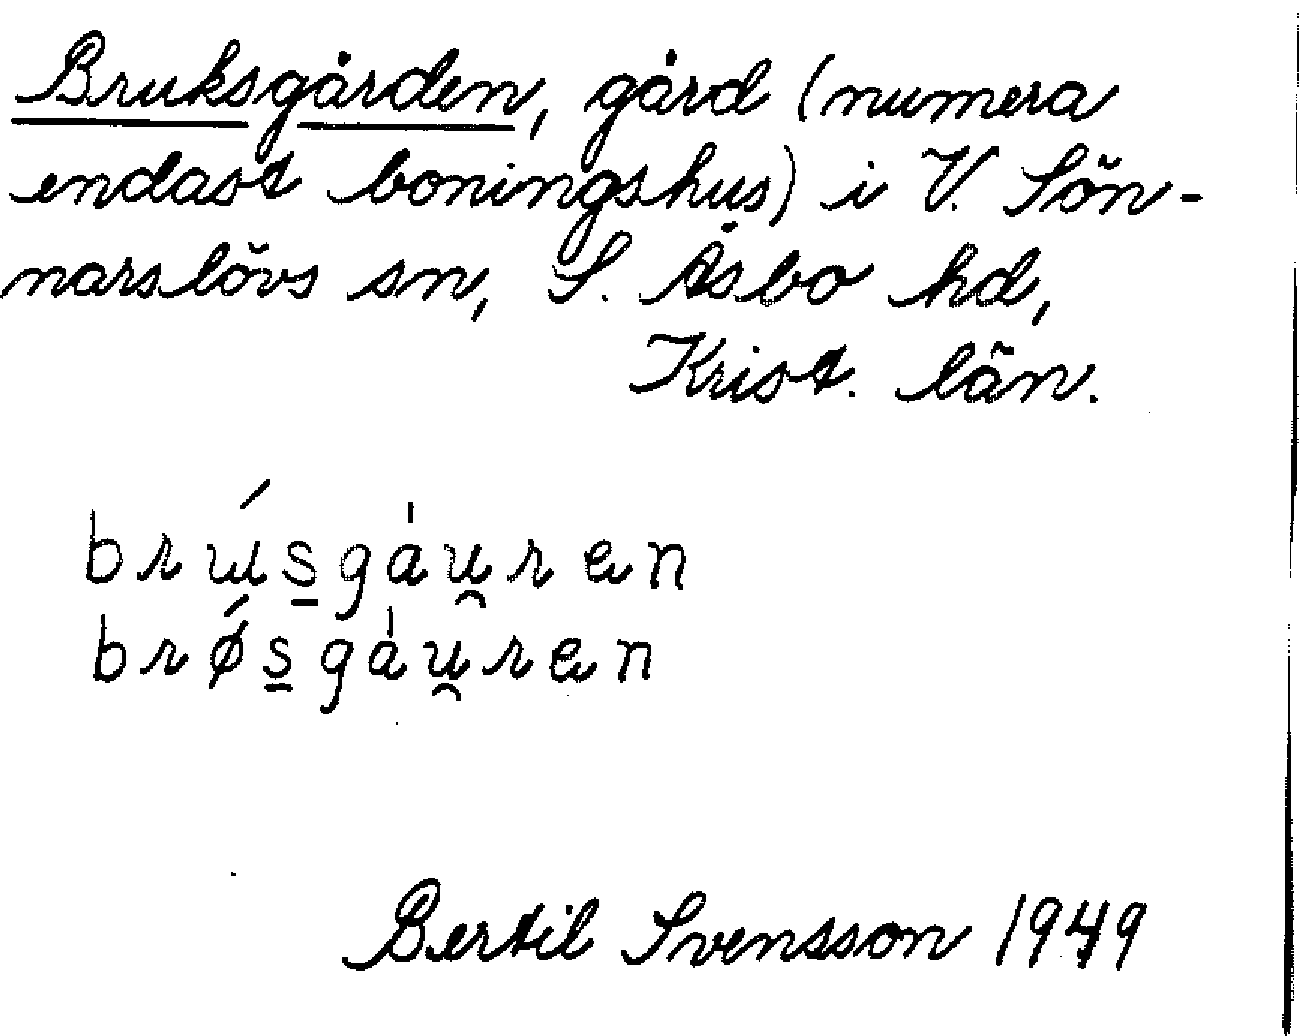 Bruksgården, gård (numera
endast boningshus) i V. Sön-
narslövs sn, S. Åsbo hd,
Krist. län.
brɯ́s̱gȧu̯ren
brǿs̱gȧu̯ren
Bertil Svensson 1949